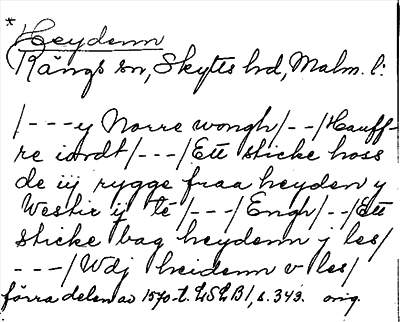 * Heydenn
Rängs sn, Skytts hd, Malm. l:
/---y Norre wongh/--/Hauff-
re iordt/---/Ett sticke hoss
de iij rygge fraa heyden y
Westir ij te /---/Engh/--/Ett
sticke bag heydenn j les/
---/Wdj heidenn v les/
förra delen av 1570-t. LSEB1, s. 343. orig.